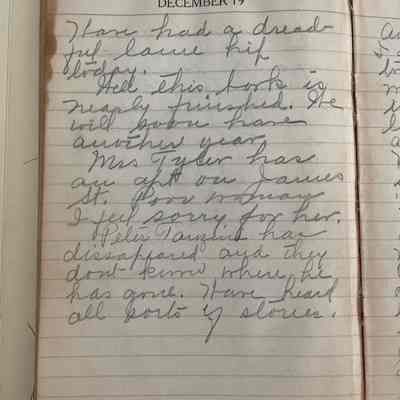 DECEMBER 19
Have had a dread-
ful lame hip
today.
Well this book is
nearly finished. We
will soon have
another year
Mrs Tyler has
an apt on James
St. Poor woman
I feel sorry for her.
Peter has
dissapeared and they
dont know where he
has gone. Have heard
all sorts of stories.